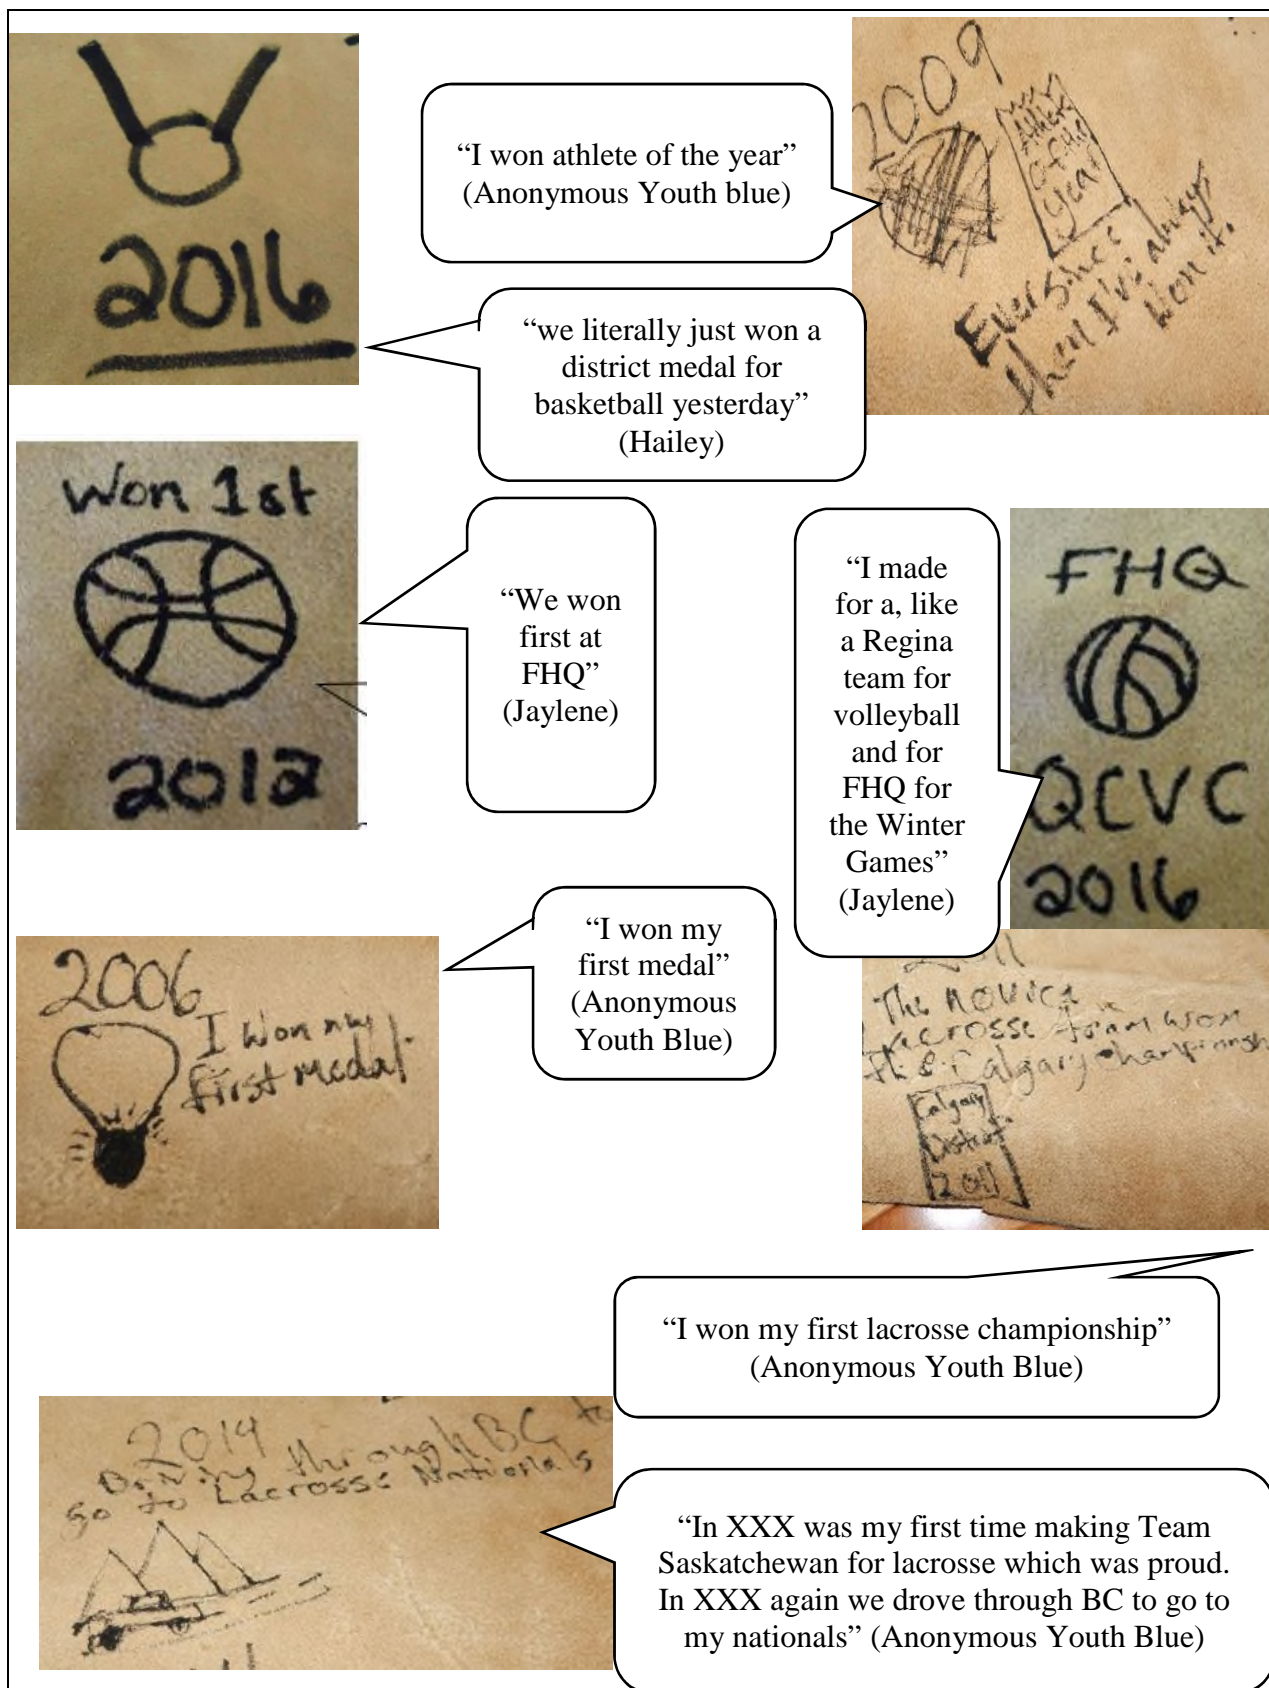 2016
“I won athlete of the year”
(Anonymous Youth blue)
2009
Athlete
of the
year
Ever since
then I've always
won it.
“we literally just won a
district medal for
basketball yesterday”
(Hailey)
Won 1st
2012
“We won
first at
FHQ”
(Jaylene)
“I made
for a, like
a Regina
team for
volleyball
and for
FHQ for
the Winter
Games”
(Jaylene)
FHQ
QCVC
2016
2006
I won my
first medal.
“I won my
first medal”
(Anonymous
Youth Blue)
2011
The novice
lacrosse team won
the Calgary championship
Calgary
District
2011
“I won my first lacrosse championship”
(Anonymous Youth Blue)
2014
Driving through BC to
go to Lacrosse Nationals
“In XXX was my first time making Team
Saskatchewan for lacrosse which was proud.
In XXX again we drove through BC to go to
my nationals” (Anonymous Youth Blue)